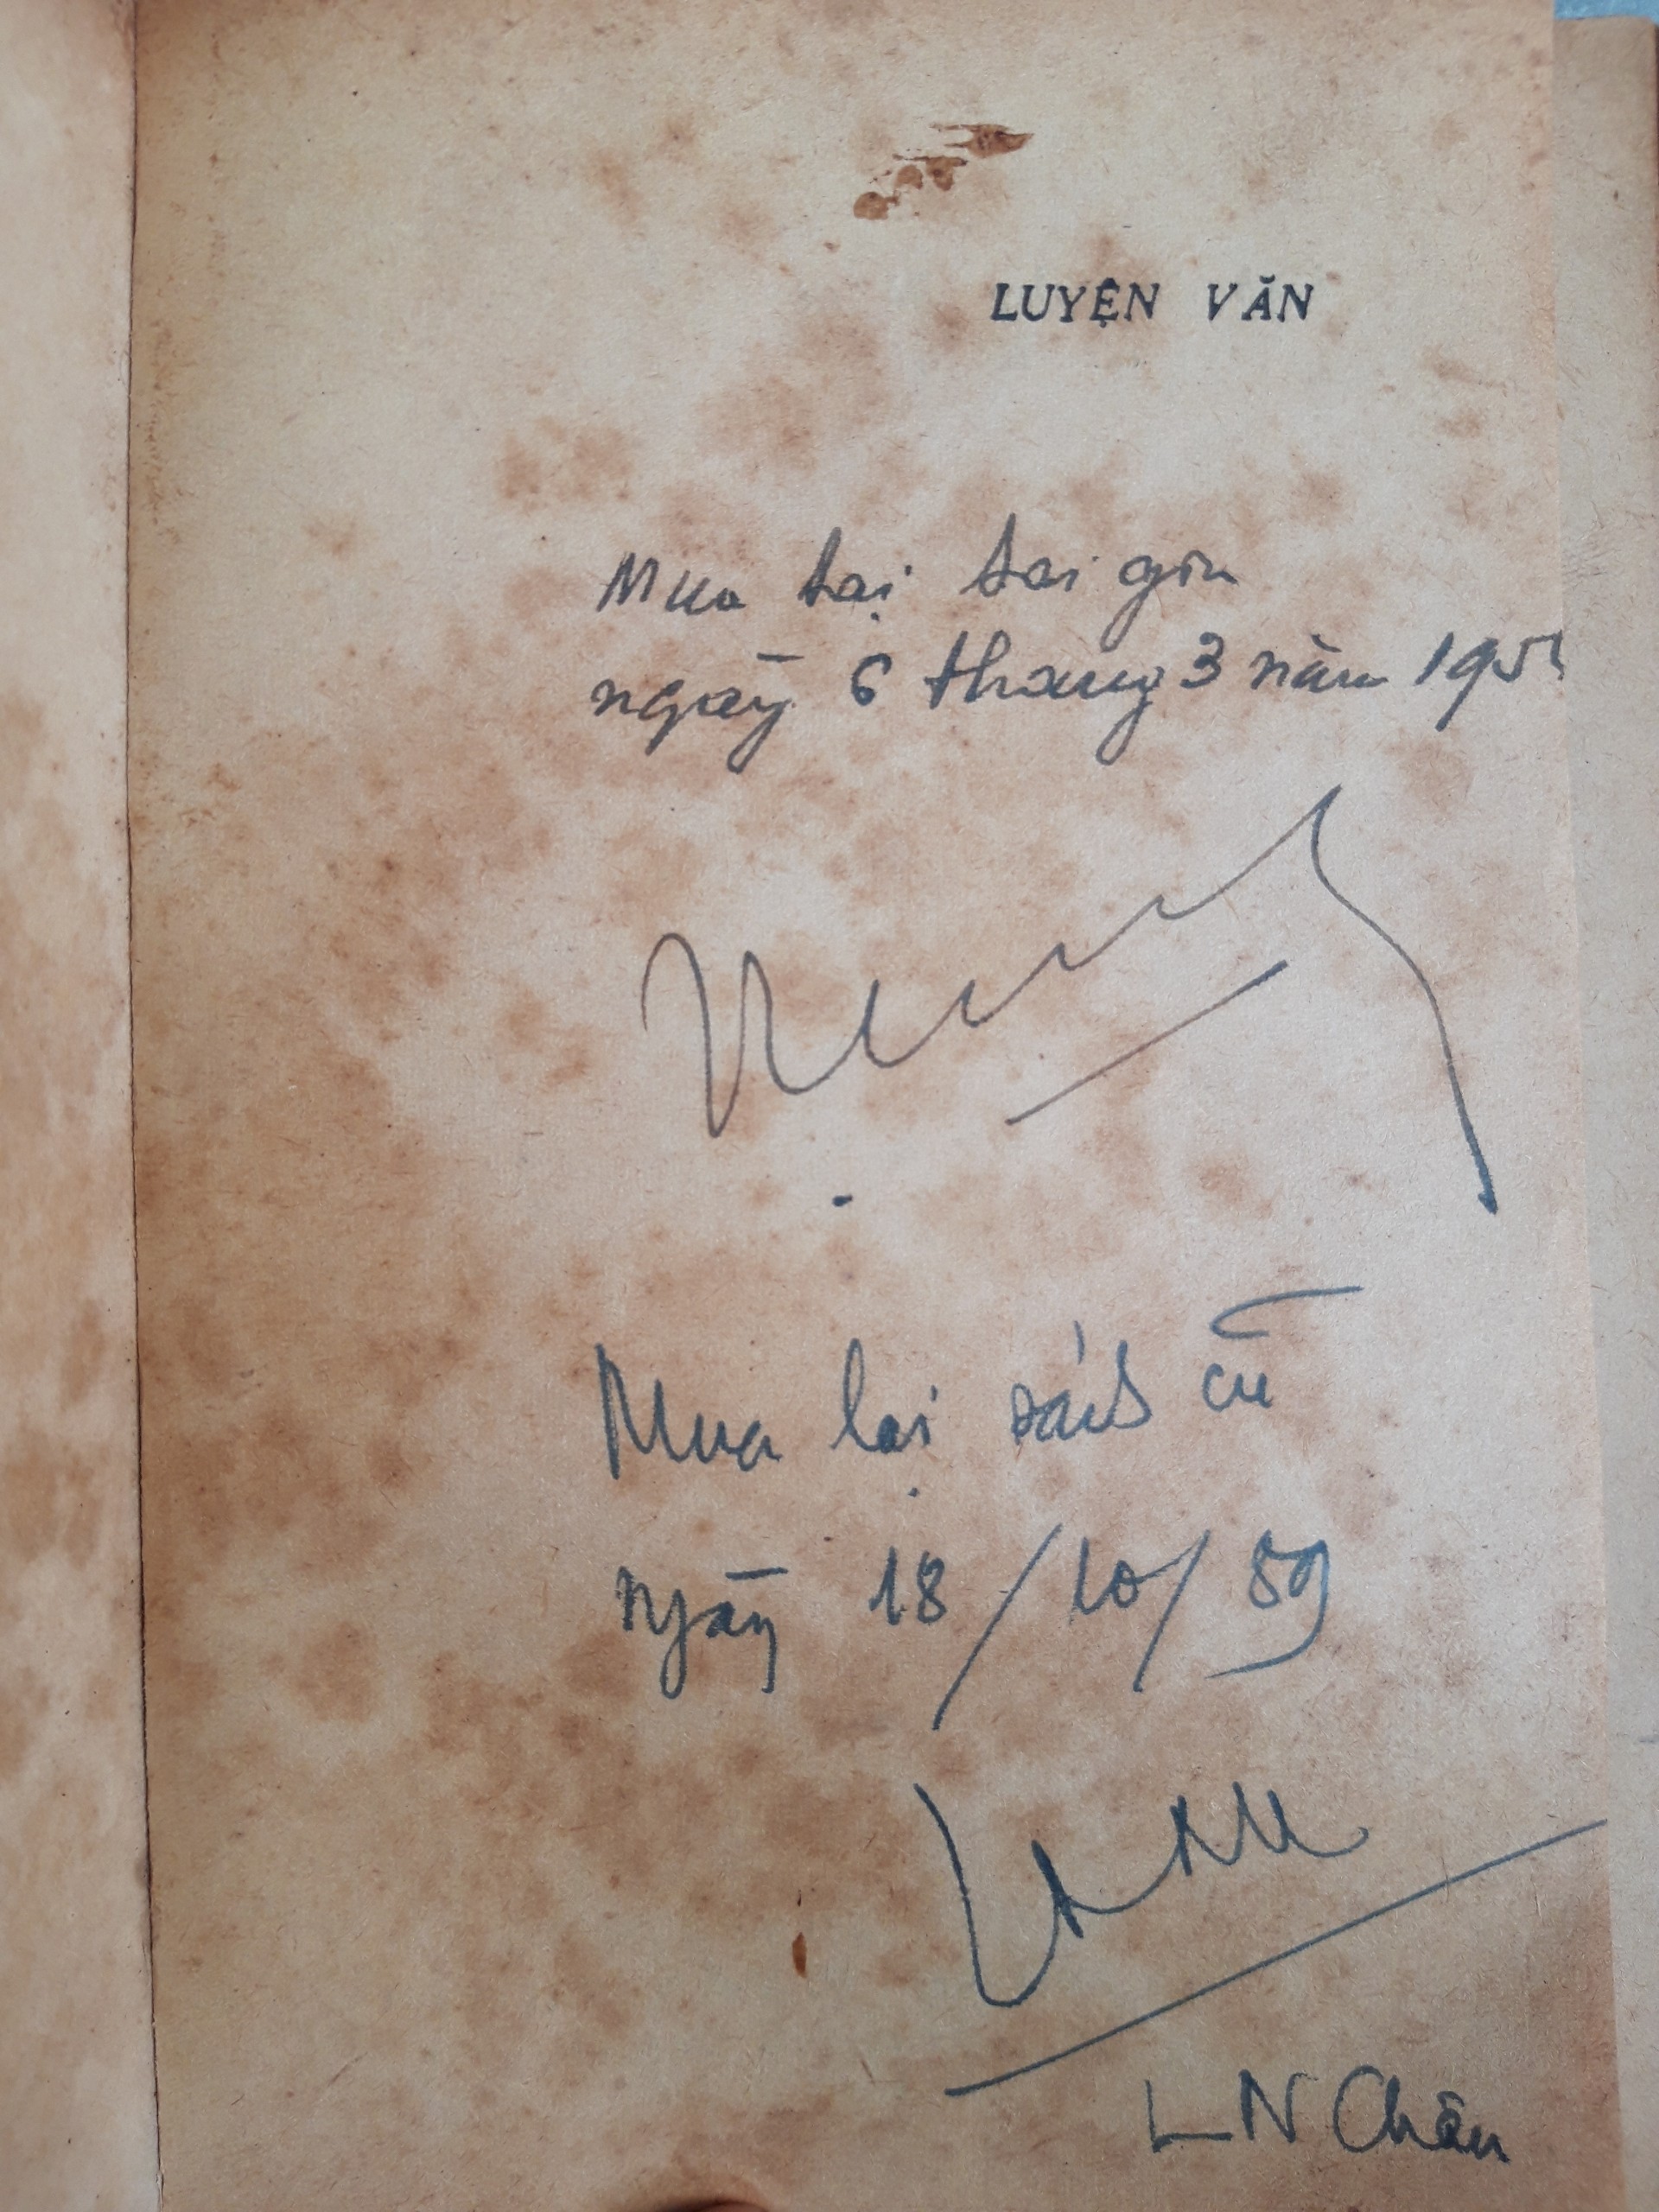 LUYỆN VĂN
Mua tại Sai gòn
ngày 6 thang 3 năm 195
Mua lại sách cũ
ngày 18/10/89
LN Châu